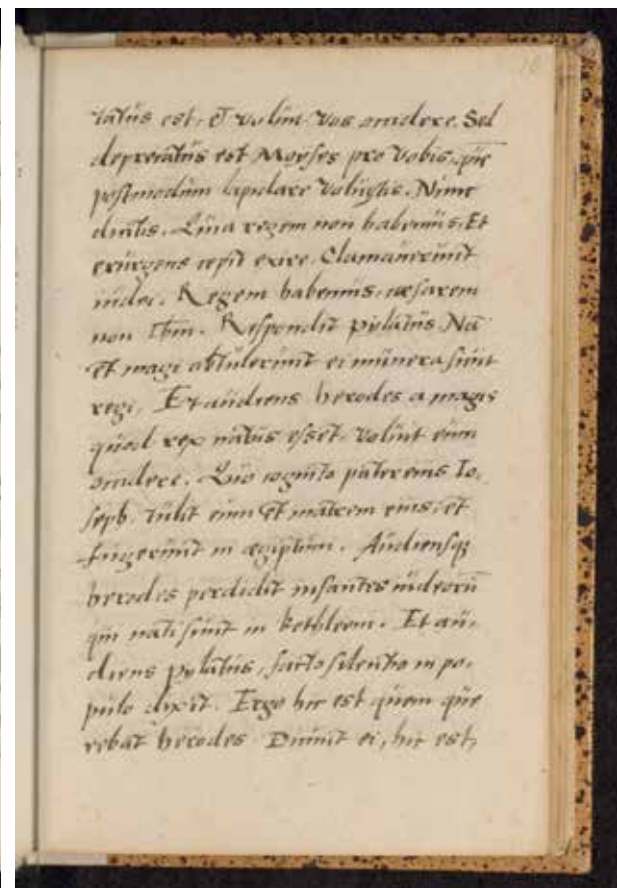 tatus est, et voluit vos occidere. Sed
deprecatus est Moyses pro vobis, quē
postmodum lapidare voluistis. Nunc
dicitis. Quia regem non habemus. Et
exurgens cepit exire. Clamauerunt
iudei. Regem habemus, cæsarem
non Ihm. Respondit pylatus. Nā
et magi obtulerunt ei munera sicut
regi. Et audiens herodes a magis
quod rex natus esset, voluit eum
occidere. Quo cognito pater eius Io,
seph, tulit eum et matrem eius, et
fugerunt in ægiptum. Audiensqꝫ
herodes perdidit infantes iudeorū
qui nati sunt in bethleem. Et au,
diens pylatus, facto silentio in po,
pulo dixit. Ergo hic est quem que
rebat herodes. Dicunt ei, hic est,